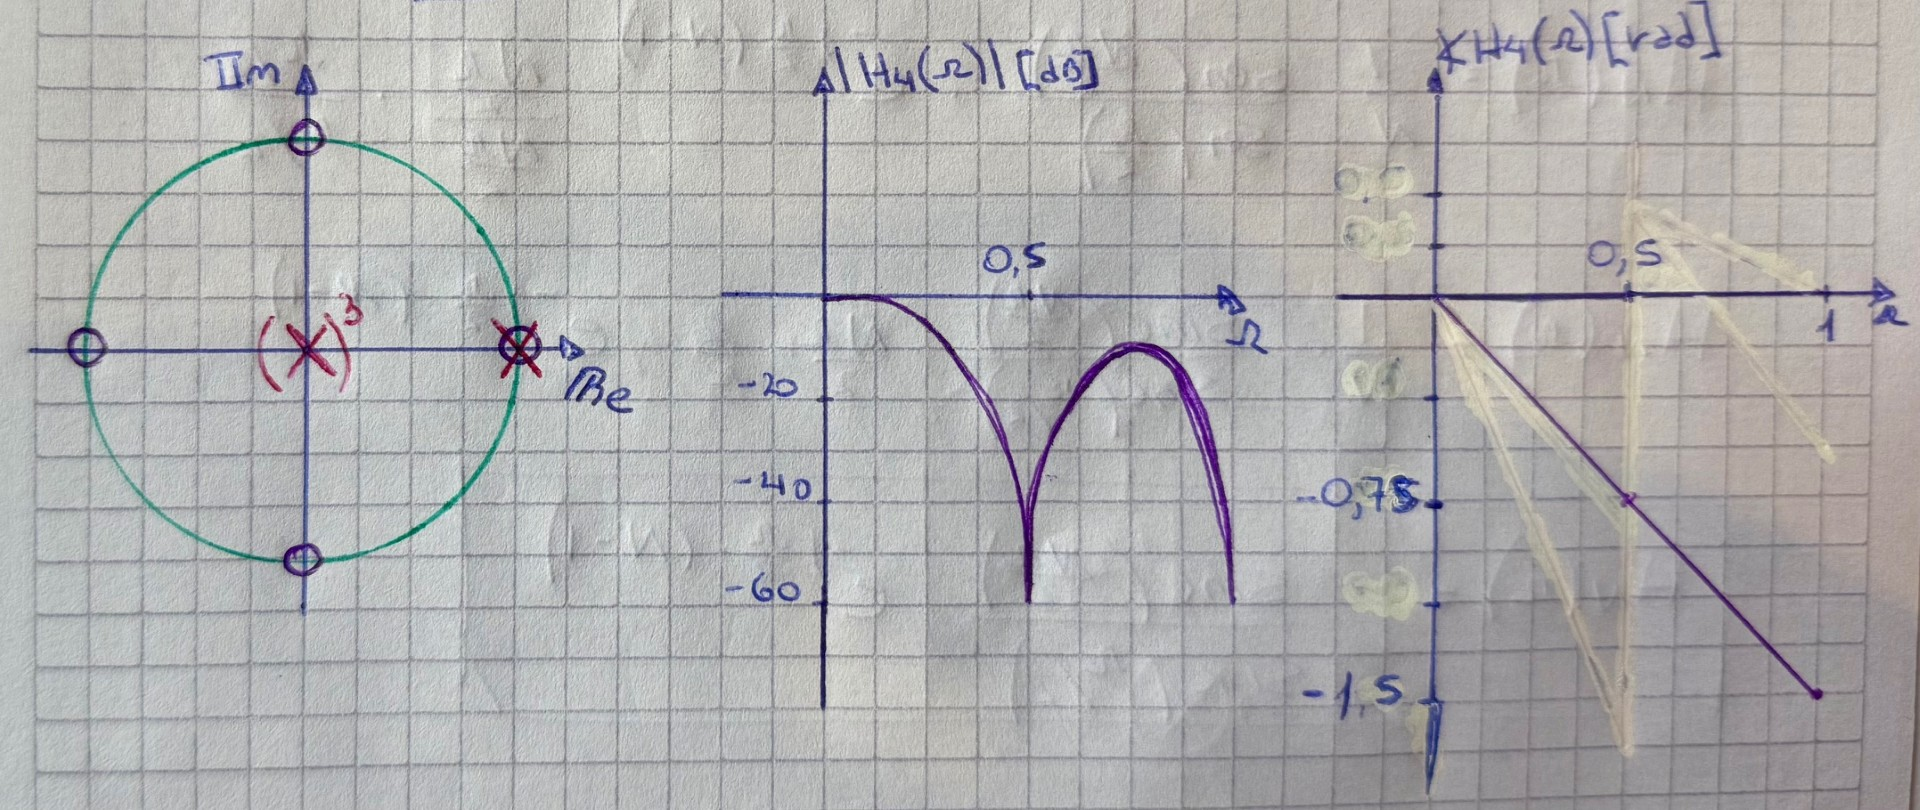 Im
(×)³
Re
|H₄(Ω)| [dB]
0,5
Ω
-20
-40
-60
∢H₄(Ω) [rad]
0,5
1
Ω
-0,75
-1,5